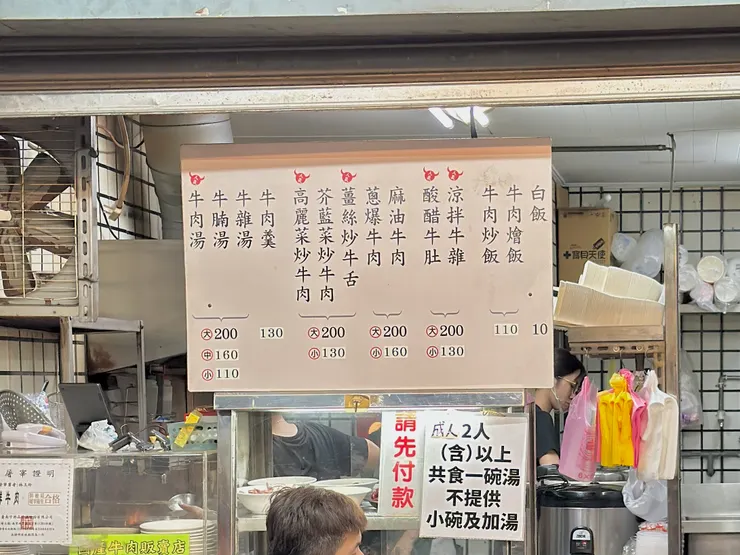 牛肉湯
牛腩湯
牛雜湯
牛肉羹
高麗菜炒牛肉
芥藍菜炒牛肉
薑絲炒牛舌
蔥爆牛肉
麻油牛肉
酸醋牛肚
涼拌牛雜
牛肉炒飯
牛肉燴飯
白飯
大200
中160
小110
130
大200
小130
大200
小160
大200
小130
110
10
請先付款
成人2人
(含)以上
共食一碗湯
不提供
小碗及加湯
寶貝天使
屠宰證明
牛肉
合格
牛肉販賣店